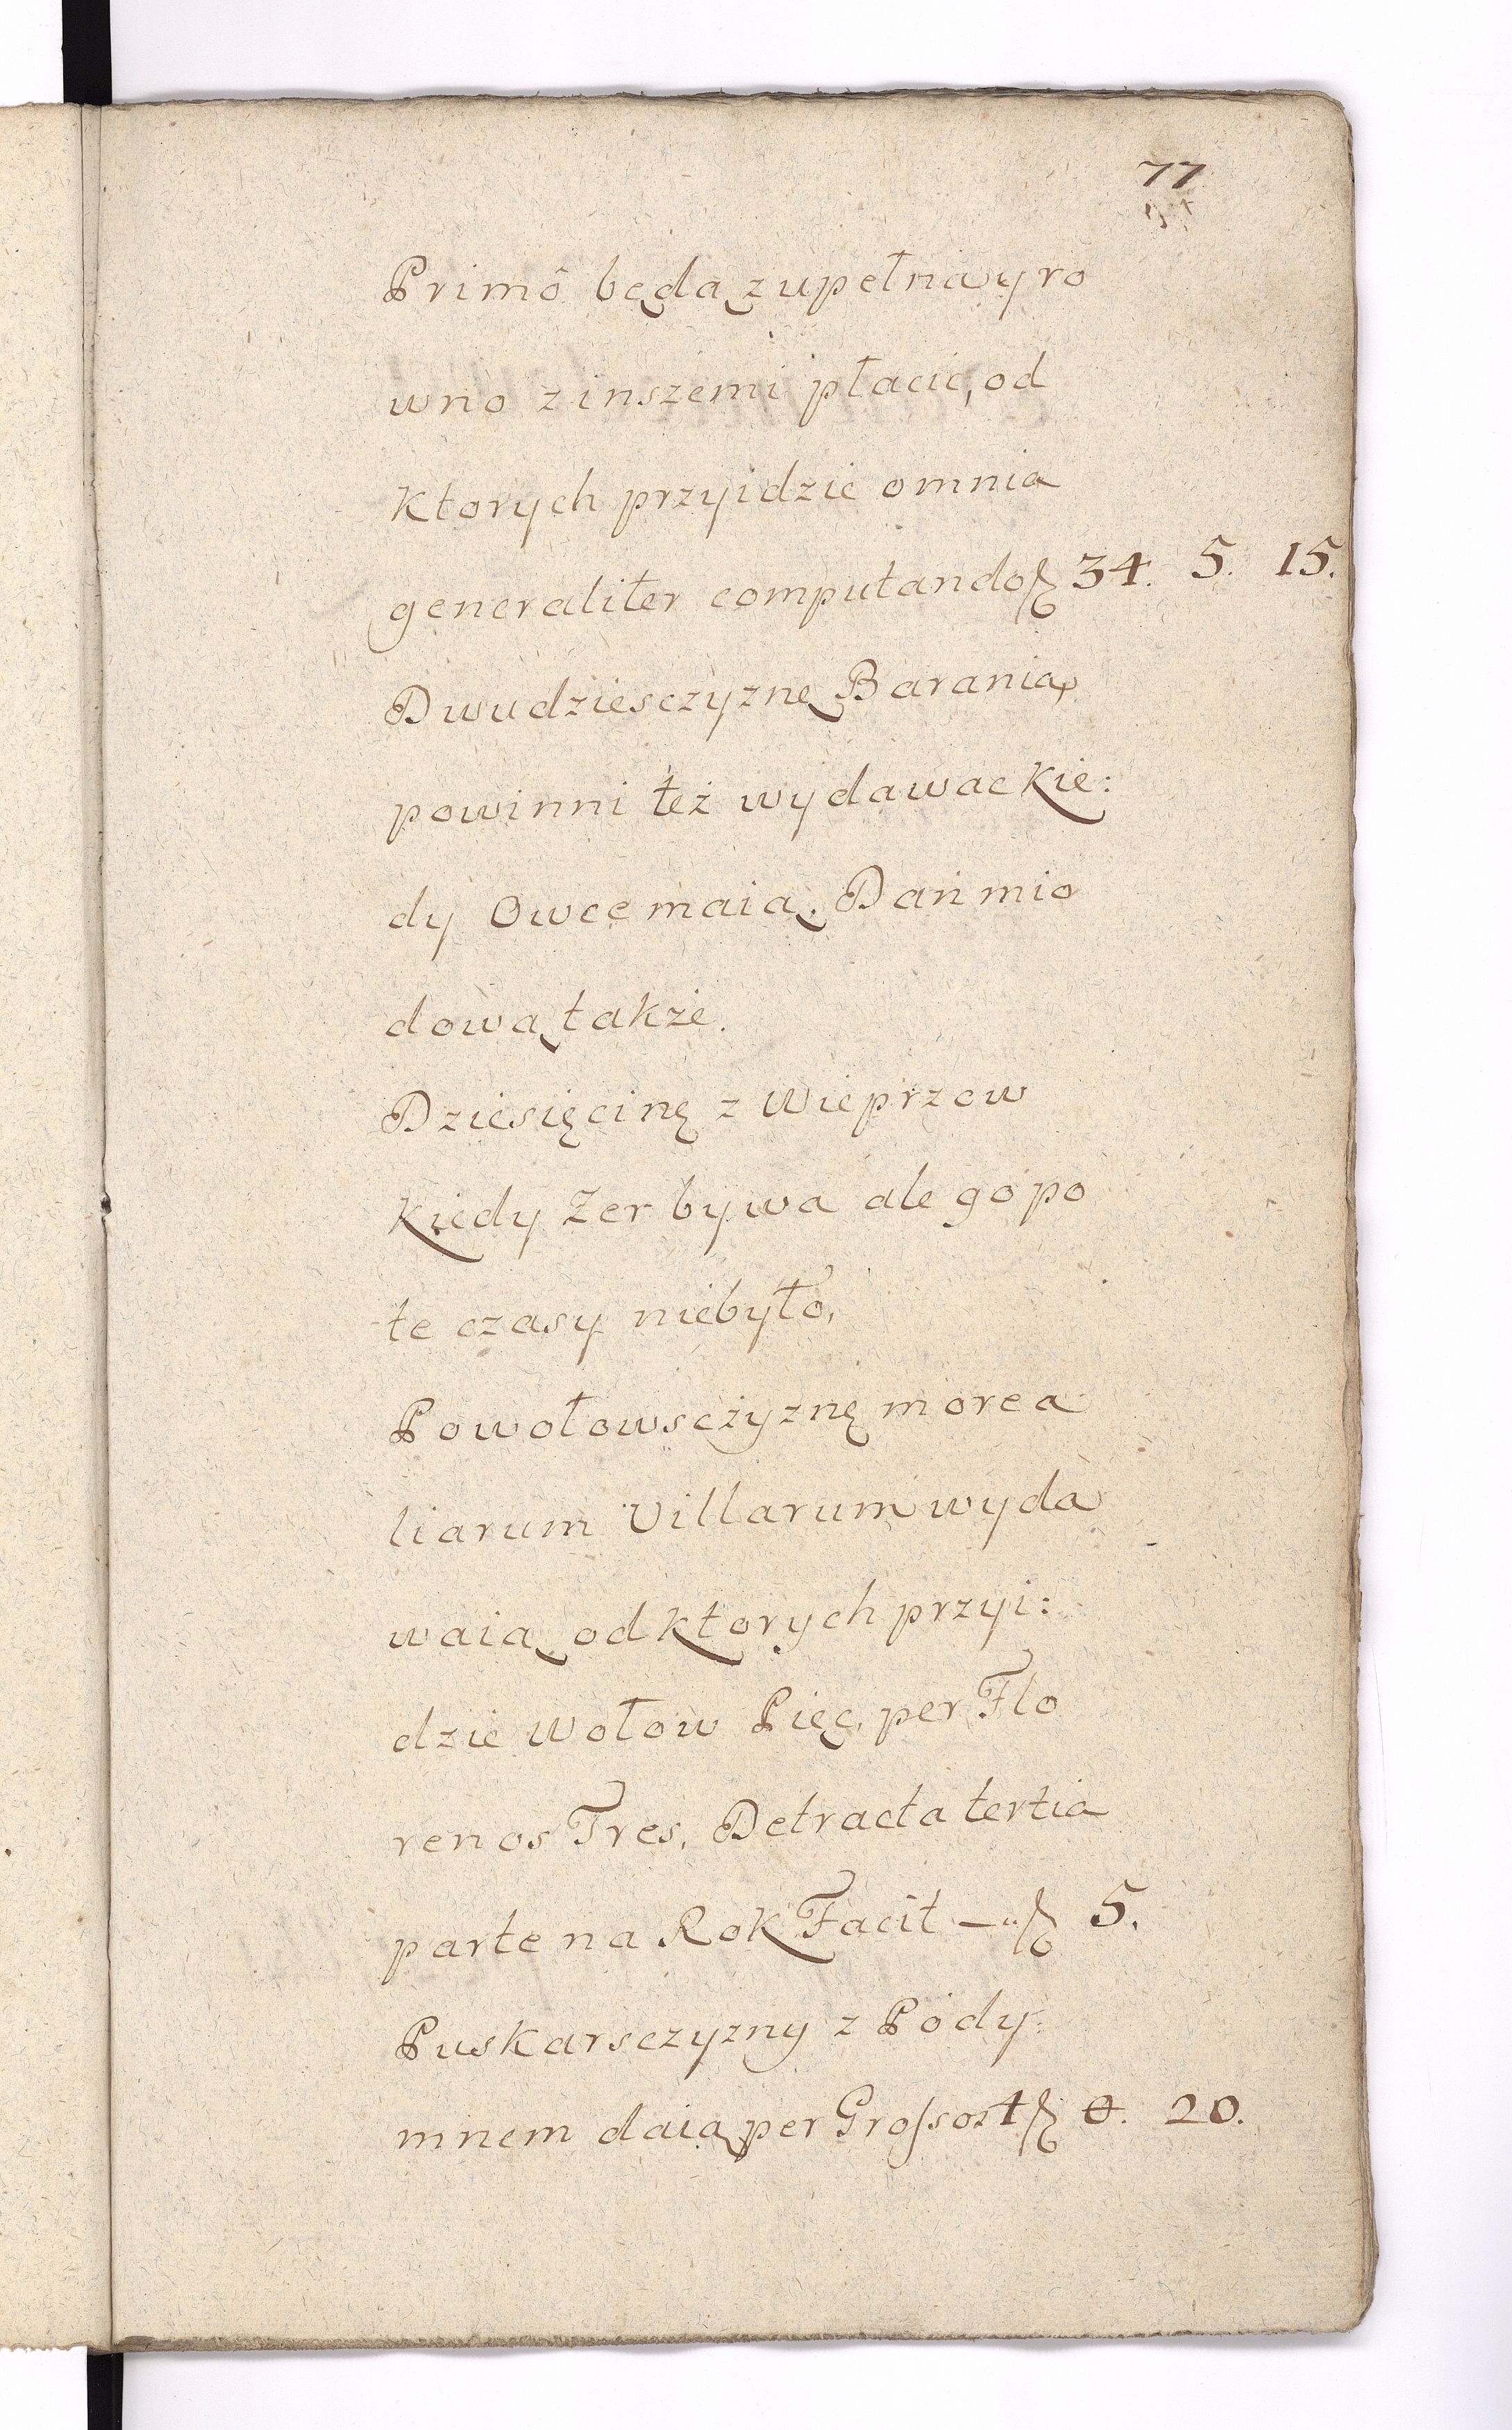 77
Primô będą zupełna y ro
wno z inszemi płacic, od
Ktorych przyidzie omnia
generaliter computando 34. 5. 15.
Dwudziesczyznę Baranią
powinni też wydawac Kie:
dy Owce maią. Dań mio
dową także.
Dziesięcinę z Wieprzow
Kiedy Zer bywa ale go po
te czasy niebyło,
Powołowsczyznę more a
liarum Villarum wyda
waią od Ktorych przyi:
dzie Wołow Pięc, per Flo
renos Tres, Detracta tertia
parte na Rok Facit — 5.
Puskarsczyzny z Pody:
mnem daią per Grossos 4 0. 20.